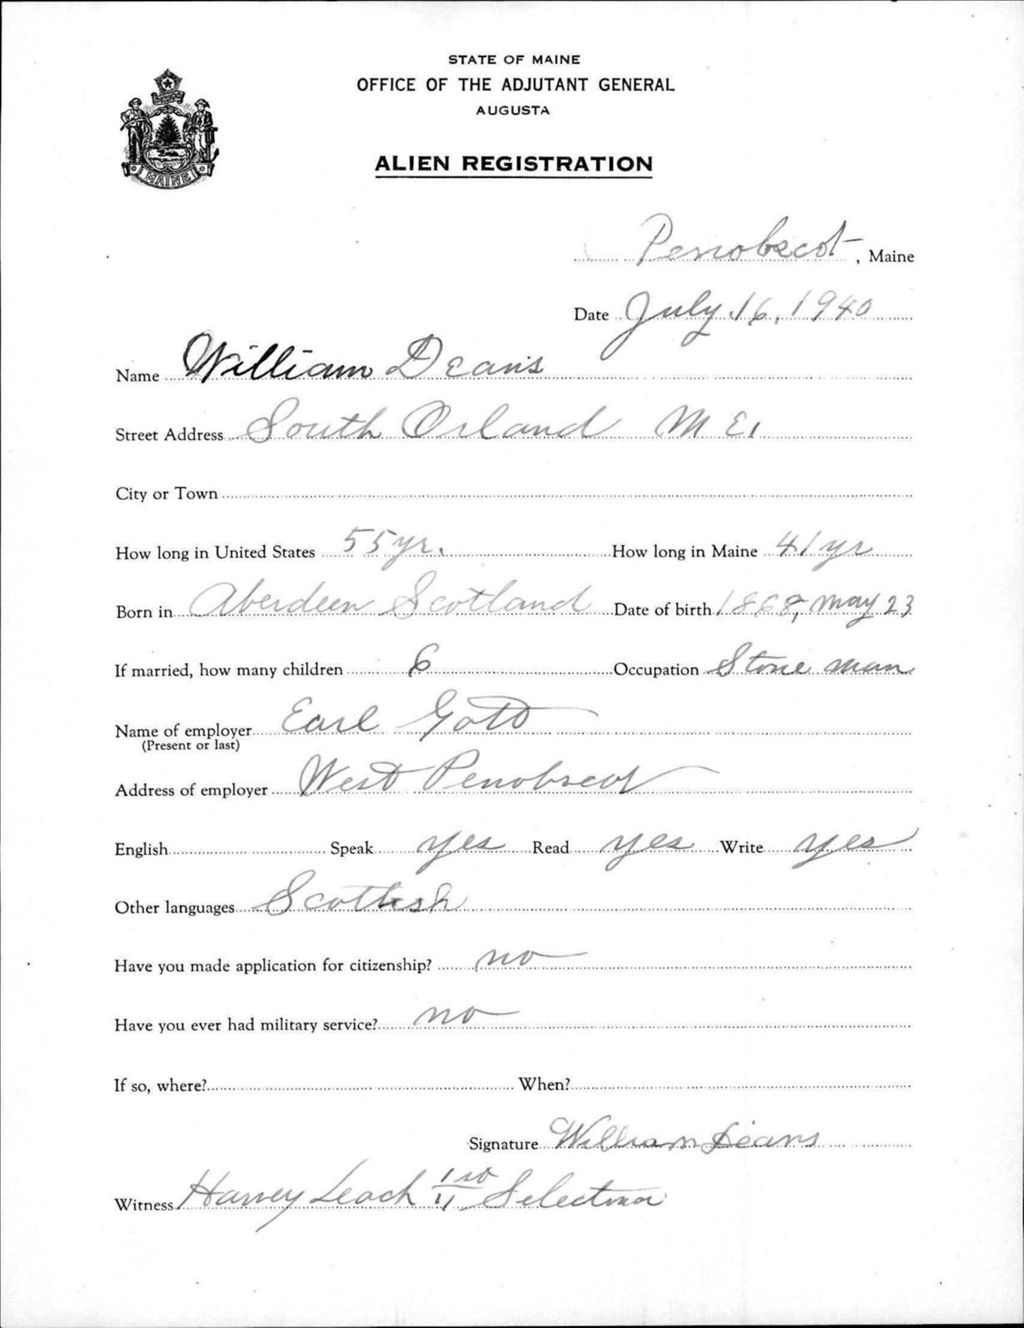 STATE OF MAINE
OFFICE OF THE ADJUTANT GENERAL
AUGUSTA
ALIEN REGISTRATION
MAINE
Penobscot, Maine
Date July 16, 1940
Name William Deans
Street Address South Orland ME.
City or Town
How long in United States 55 yr. How long in Maine 41 yr
Born in Aberdeen Scotland Date of birth 1868, May 23
If married, how many children 6 Occupation Stone man
Name of employer Earl Gott
(Present or last)
Address of employer West Penobscot
English Speak yes Read yes Write yes
Other languages Scottish
Have you made application for citizenship? no
Have you ever had military service? no
If so, where? When?
Signature William Deans
Witness Harvey Leach 1st Selectman